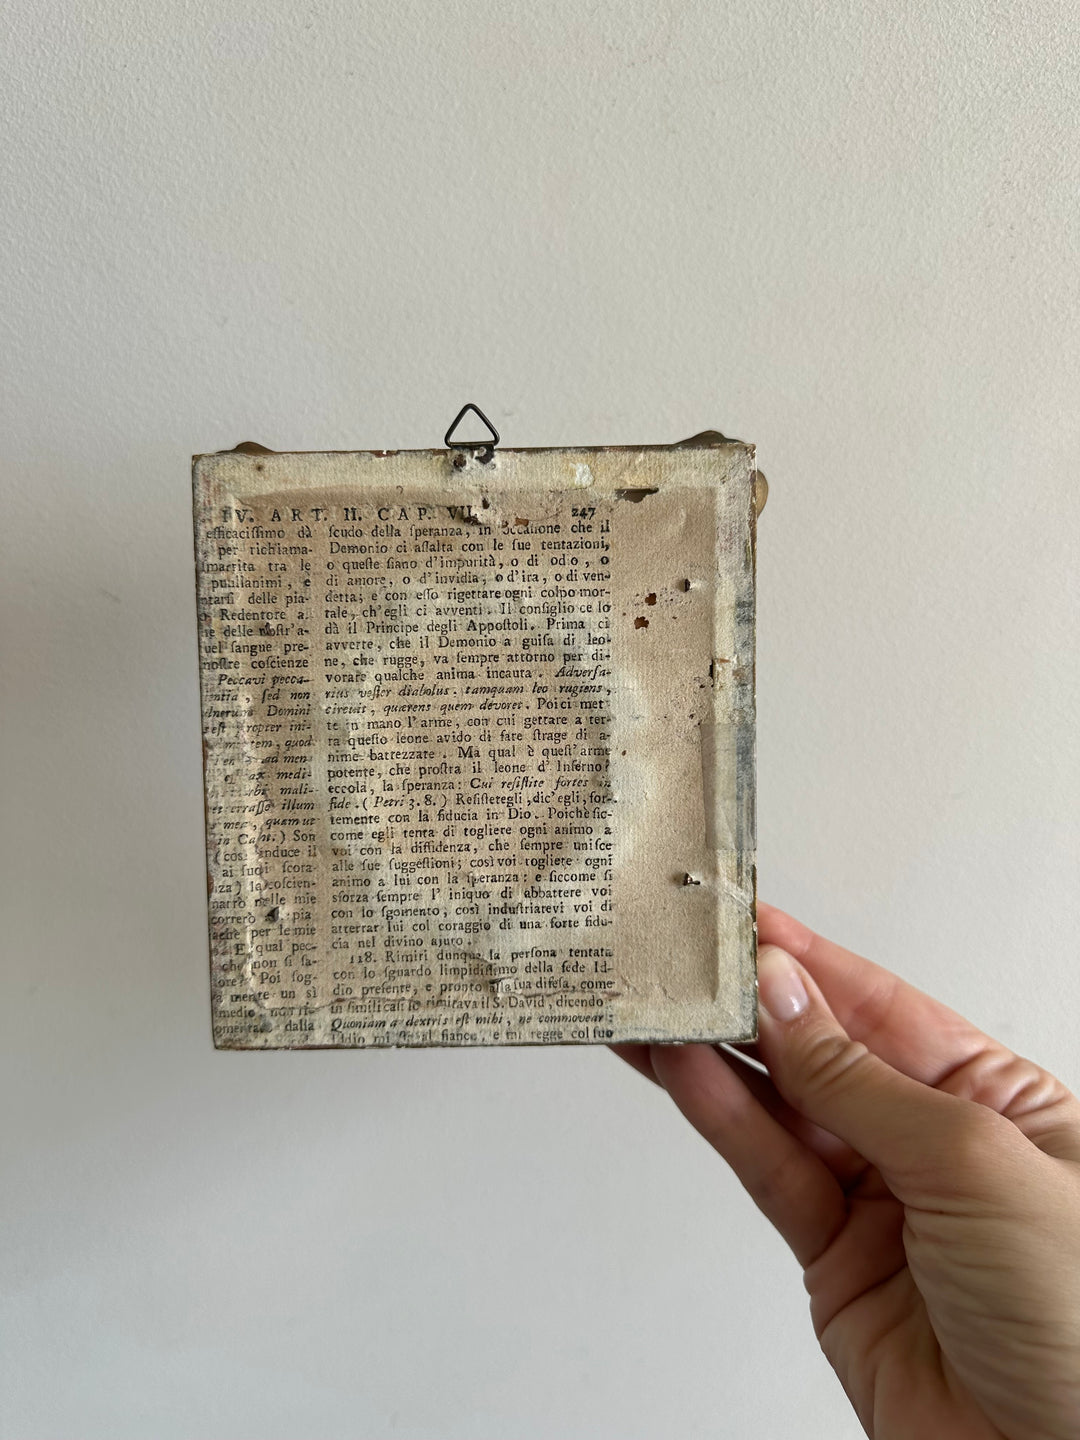 IV. ART. II. CAP. VII. 247
efficacissimo dà
per richiama-
smarrita tra le
pusillanimi, e
ntarsi delle pia-
o Redentore a.
re delle nostr'a-
uel sangue pre-
nostre coscienze
Peccavi pecca-
entia, sed non
ulnerum Domini
est propter ini-
quod
ad men
medi-
mali-
et errasse illum
mea, quem ut
in Cant.) Son
(così induce il
ai suoi scora-
nza) la coscien-
narrò nelle mie
correrò pia
ache per le mie
E qual pec-
che non si sa-
ore? Poi sog-
a mente un sì
medio,
dalla
ſcudo della ſperanza, in occaſione che il
Demonio ci aſſalta con le ſue tentazioni,
o queſte ſiano d'impurità, o di odio, o
di amore, o d'invidia, o d'ira, o di ven-
detta; e con eſſo rigettare ogni colpo mor-
tale, ch'egli ci avventi. Il conſiglio ce lo
dà il Principe degli Appoſtoli. Prima ci
avverte, che il Demonio a guiſa di leo-
ne, che rugge, va ſempre attorno per di-
vorare qualche anima incauta. Adverſa-
rius veſter diabolus. tamquam leo rugiens,
circuit, quærens quem devoret. Poi ci met-
te in mano l'arme, con cui gettare a ter-
ra queſto leone avido di fare ſtrage di a-
nime battezzate. Ma qual è queſt'arme
potente, che proſtra il leone d'Inferno?
eccola, la ſperanza: Cui reſiſtite fortes in
fide. (Petri 3. 8.) Reſiſteregli, dic'egli, for-
temente con la fiducia in Dio. Poichè ſic-
come egli tenta di togliere ogni animo a
voi con la diffidenza, che ſempre uniſce
alle ſue ſuggeſtioni; così voi togliete ogni
animo a lui con la ſperanza: e ſiccome ſi
sforza ſempre l'iniquo di abbattere voi
con lo ſgomento, così induſtriatevi voi di
atterrar lui col coraggio di una forte fidu-
cia nel divino ajuto.
118. Rimiri dunque la perſona tentata
con lo ſguardo limpidiſſimo della fede Id-
dio preſente, e pronto alla ſua difeſa, come
in ſimili caſi lo rimirava il S. David, dicendo:
Quoniam a dextris eſt mihi, ne commovear:
Iddio mi ſta al fianco, e mi regge col ſuo